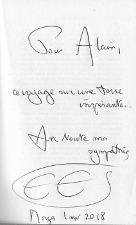 Pour Alain,
ce voyage sur une terre
inspirante...
Avec toute ma
sympathie
EES
2018